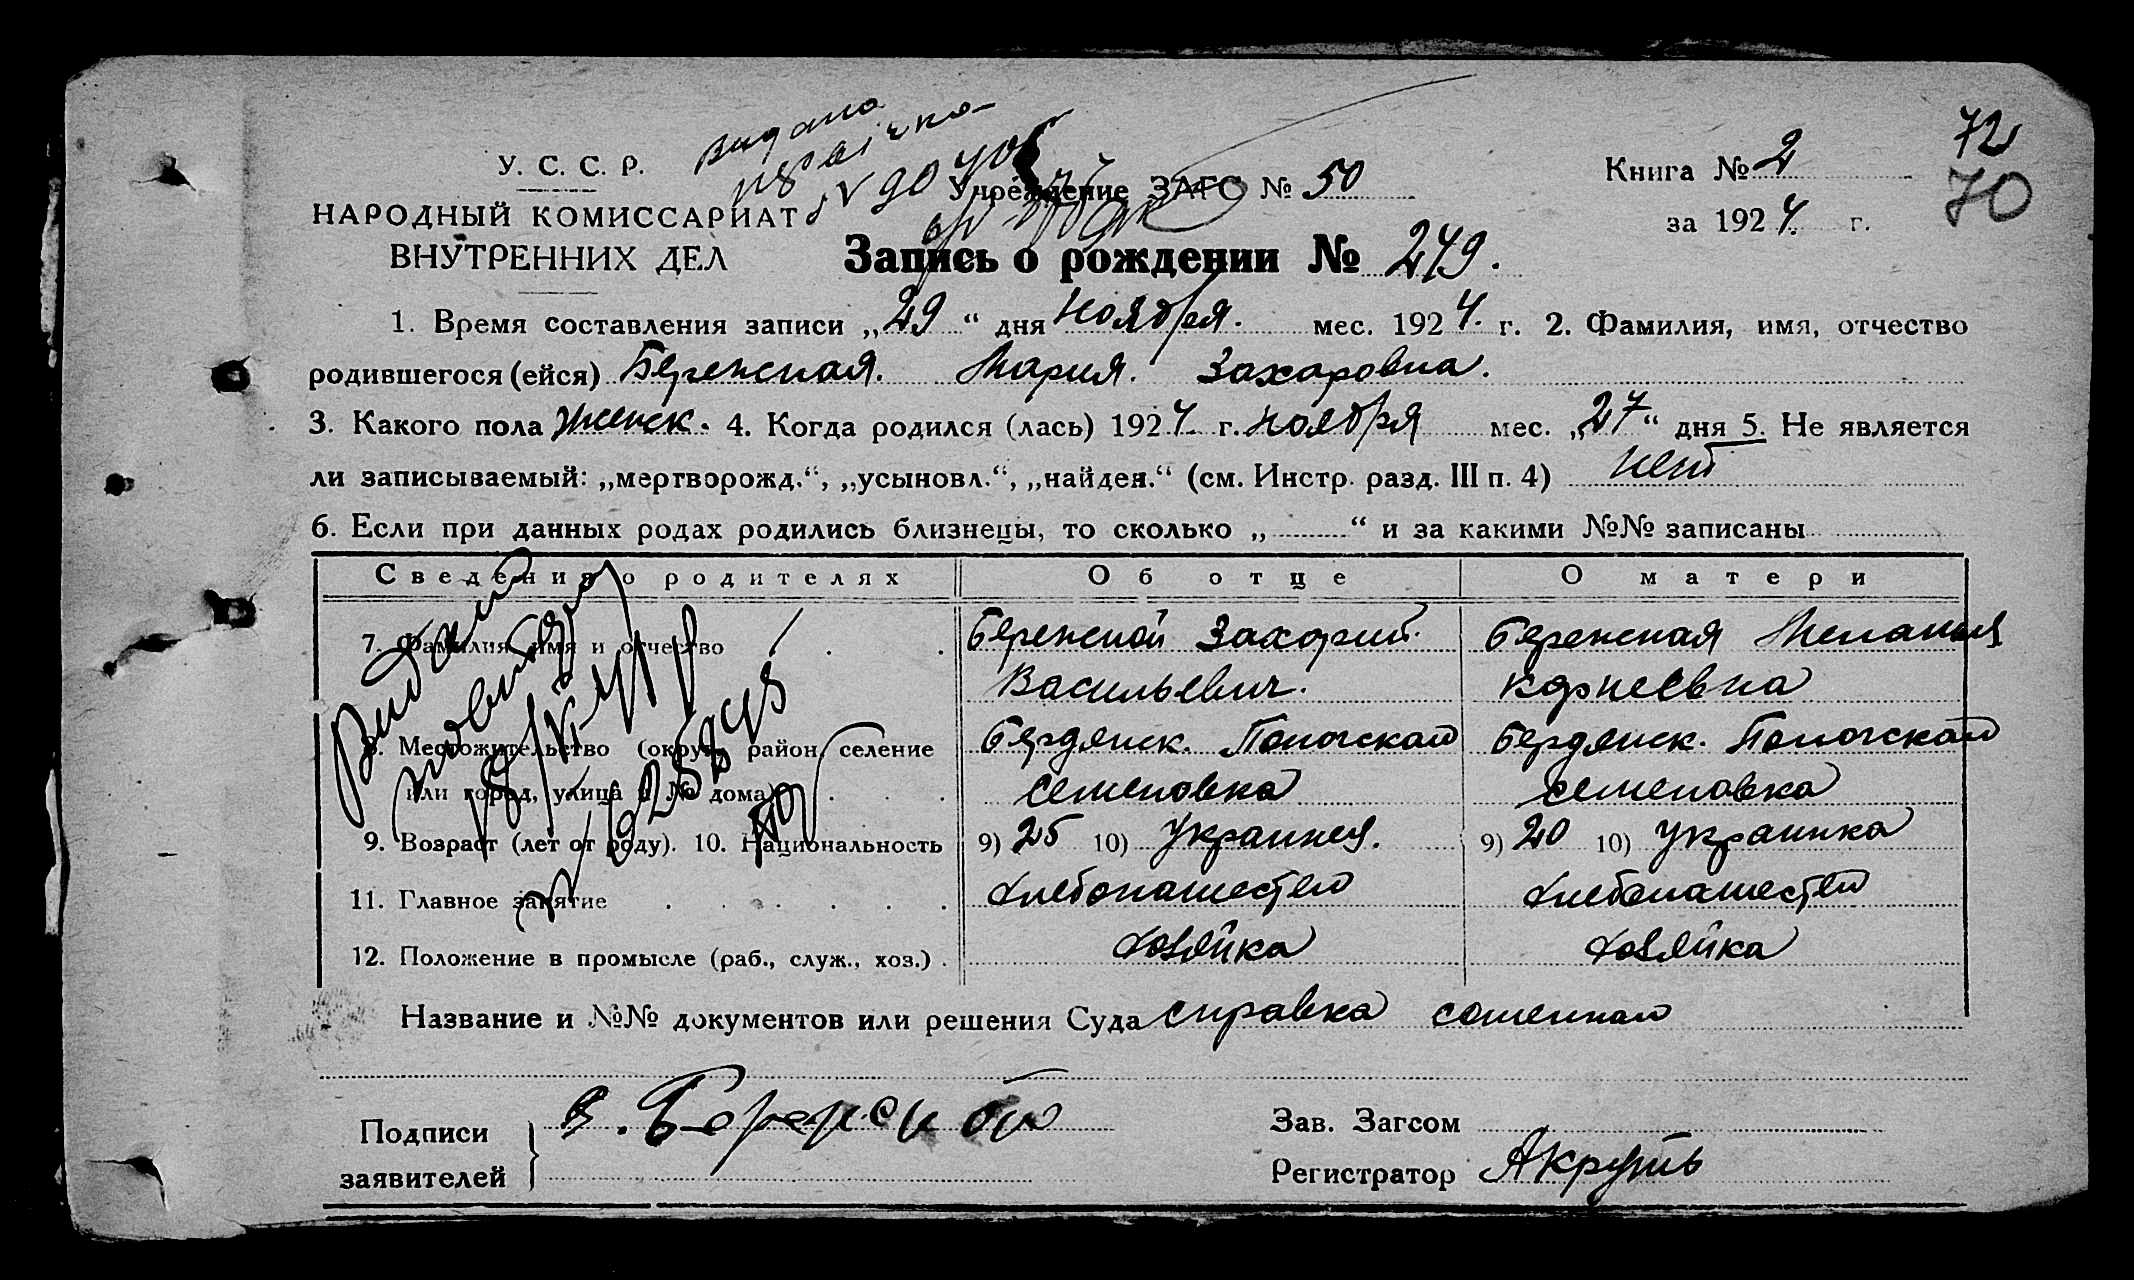 72
70
У. С. С. Р.
НАРОДНЫЙ КОМИССАРИАТ
ВНУТРЕННИХ ДЕЛ
видано
Учреждение ЗАГС № 50
Книга № 2
за 1924 г.
Запись о рождении № 249.
1. Время составления записи „29“ дня ноября. мес. 1924. г. 2. Фамилия, имя, отчество
родившегося (ейся) Бережская. Мария. Захаровна.
3. Какого пола женск. 4. Когда родился (лась) 1924 г. ноября мес. „27“ дня 5. Не является
ли записываемый: „мертворожд.“, „усыновл.“, „найден.“ (см. Инстр. разд. III п. 4) нет
6. Если при данных родах родились близнецы, то сколько „ “ и за какими №№ записаны
Сведения о родителях Об отце О матери
7. Фамилия, имя и отчество Бережской Захарий. Бережская Мелания
Васильевич. Корнеевна
8. Местожительство (округ, район, селение Бердянск. Пологский Бердянск. Пологский
или город, улица и № дома) Семеновка Семеновка
9. Возраст (лет от роду). 10. Национальность 9) 25 10) Украинец. 9) 20 10) Украинка
11. Главное занятие Хлебопашество Хлебопашество
12. Положение в промысле (раб., служ., хоз.) хозяйка хозяйка
Название и №№ документов или решения Суда справка
Подписи
заявителей
З. Бережской
Зав. Загсом
Регистратор АКруть
Видано